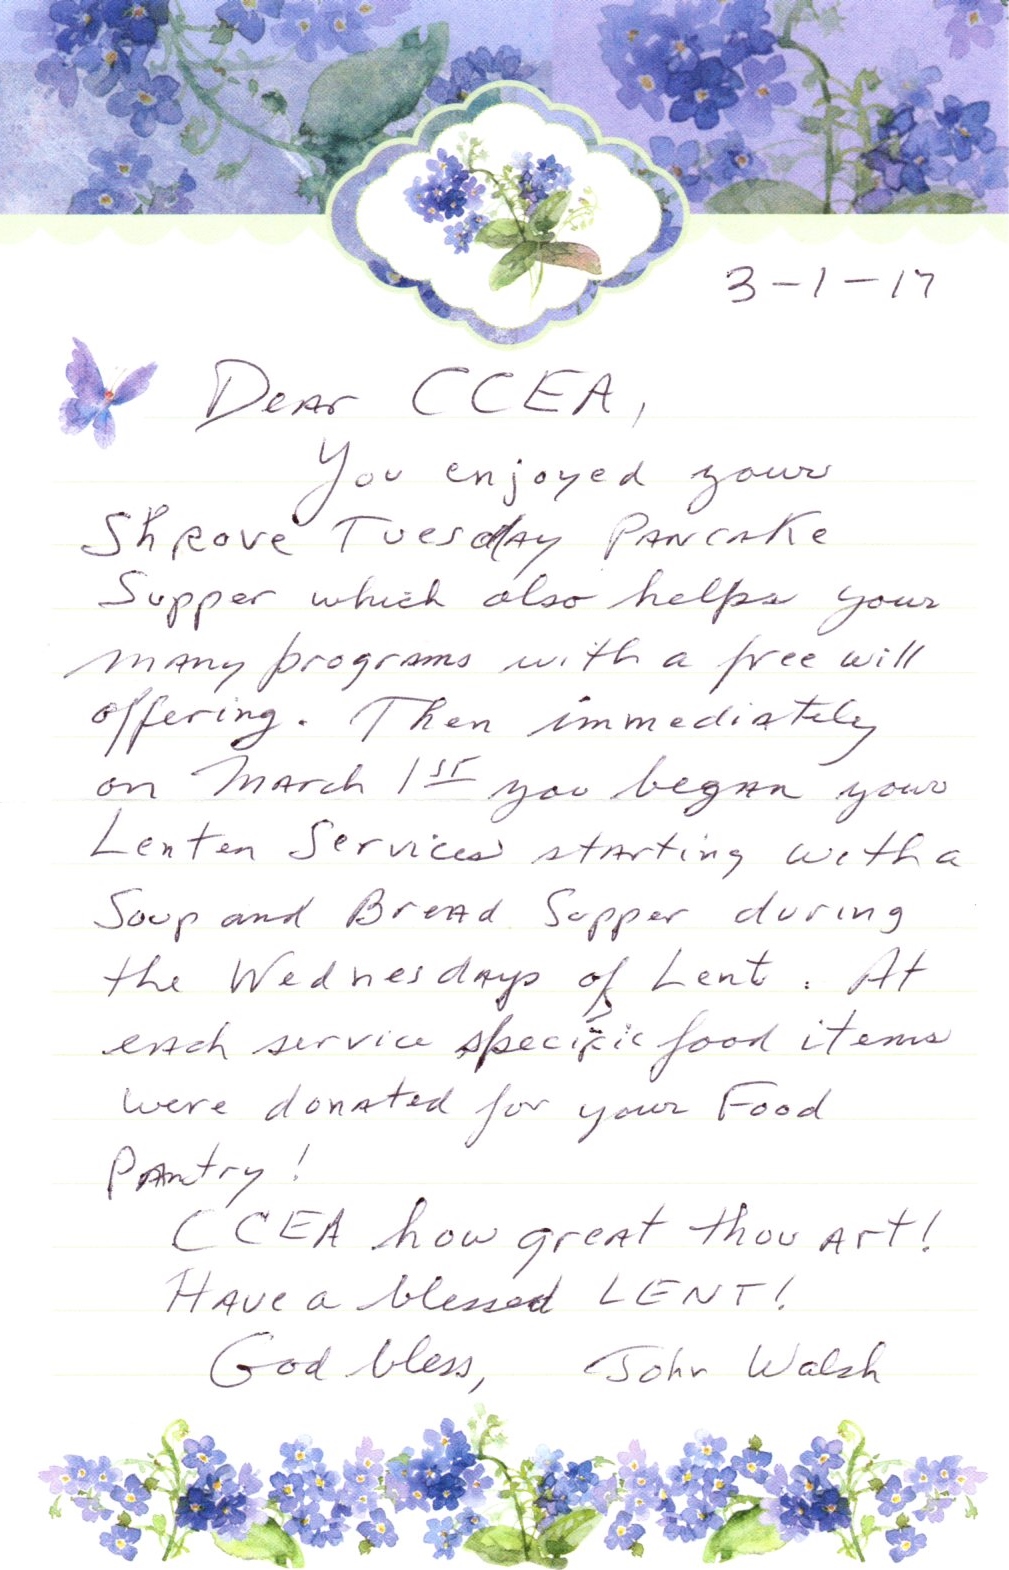 3-1-17
Dear CCEA,
You enjoyed your
Shrove Tuesday Pancake
Supper which also helps your
many programs with a free will
offering. Then immediately
on March 1st you began your
Lenten Services starting with a
Soup and Bread Supper during
the Wednesdays of Lent. At
each service specific food items
were donated for your Food
Pantry!
CCEA how great thou art!
Have a blessed LENT!
God bless, John Walsh